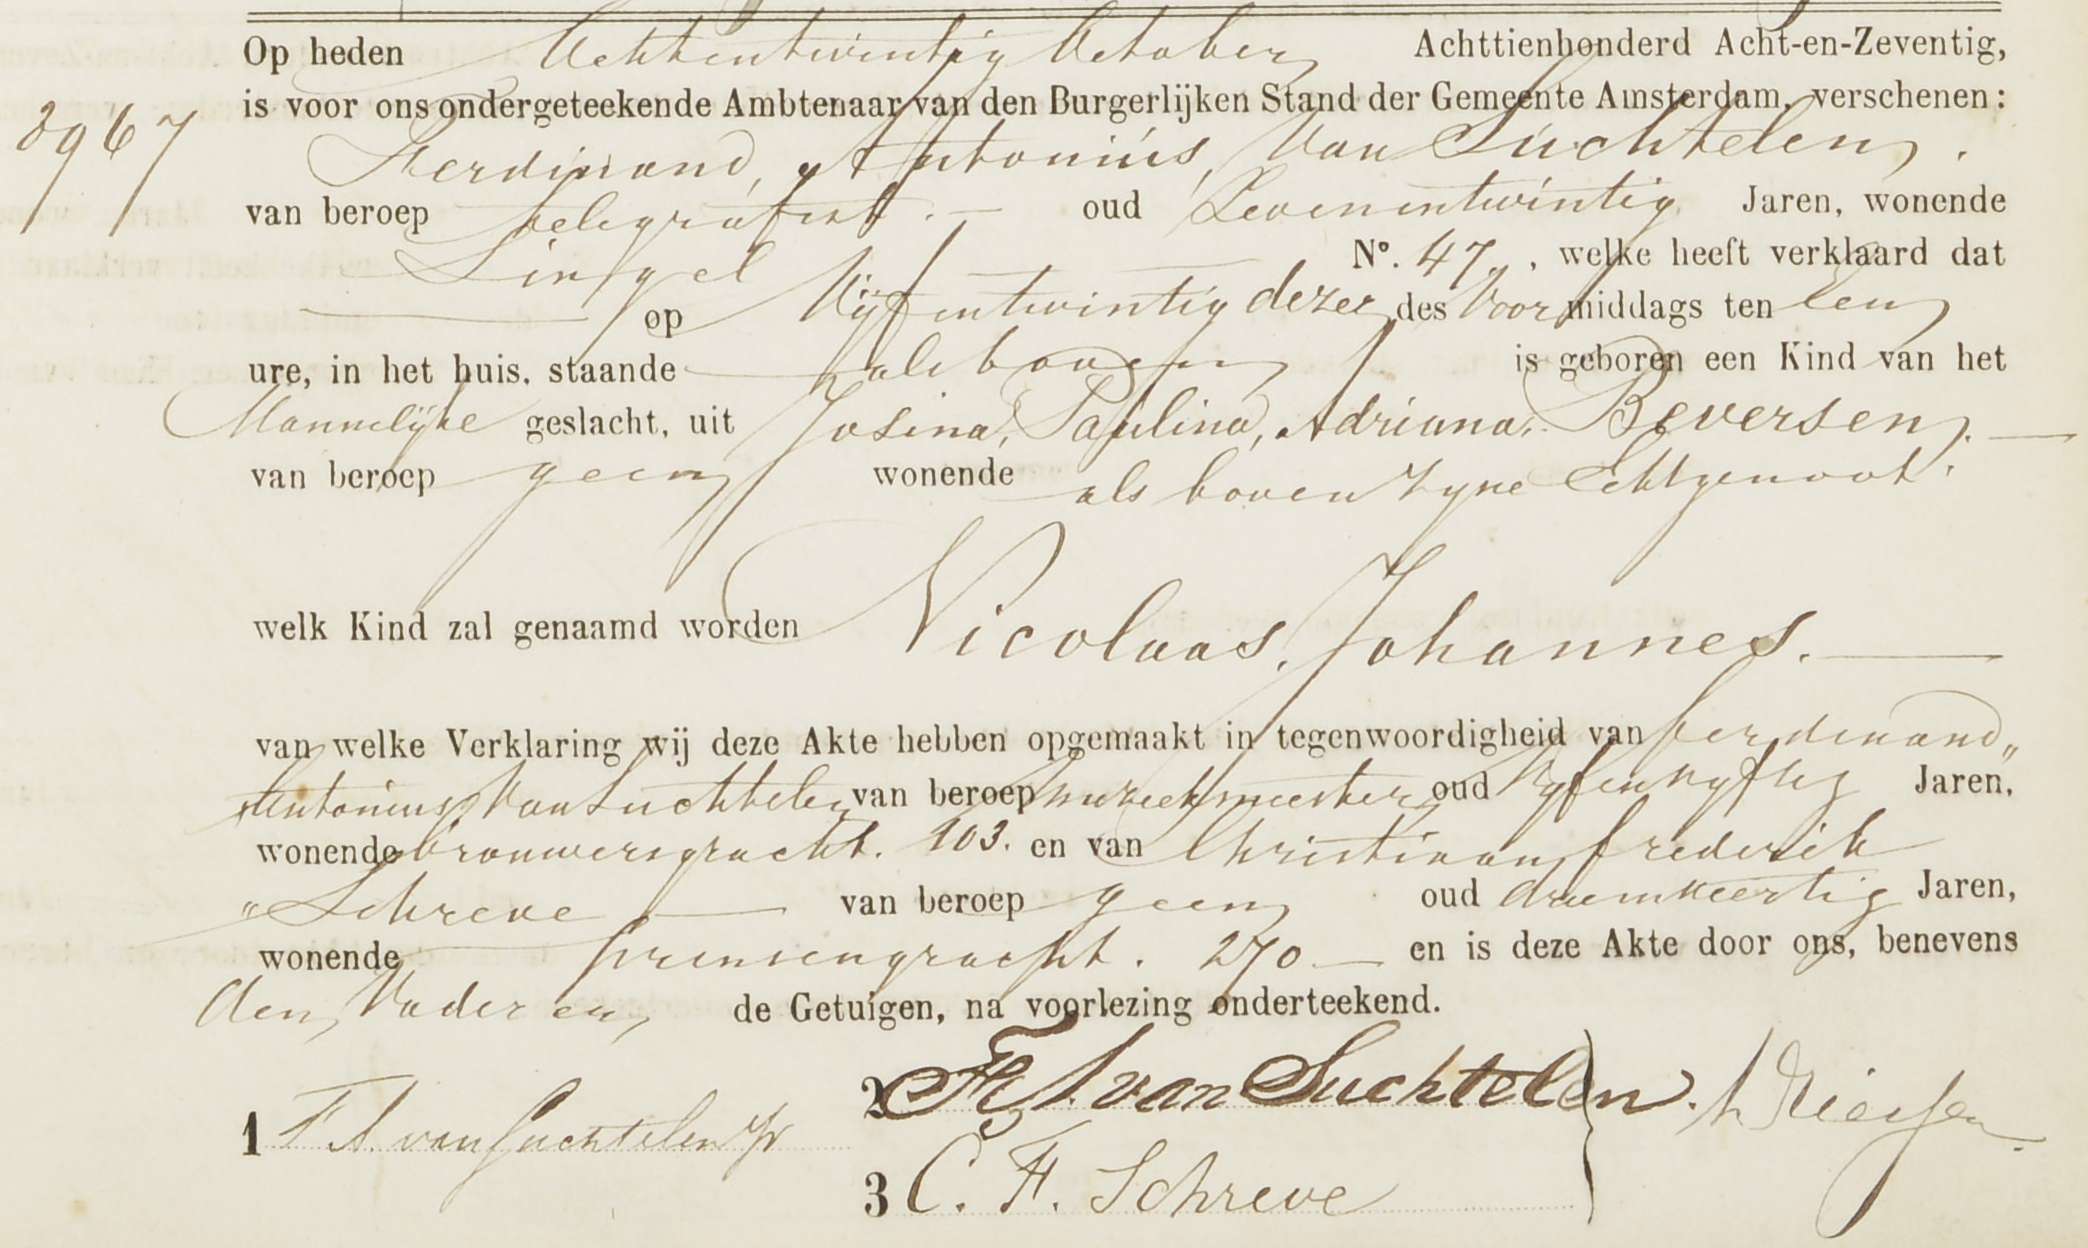 Op heden Achtentwintig October Achttienhonderd Acht-en-Zeventig,
is voor ons ondergeteekende Ambtenaar van den Burgerlijken Stand der Gemeente Amsterdam, verschenen:
3967
Ferdinand, Antonius, van Suchtelen.
van beroep telegrafist. oud Zevenentwintig Jaren, wonende
Singel No. 47, welke heeft verklaard dat
op Vijfentwintig dezer des Voormiddags ten een
ure, in het huis, staande als boven is geboren een Kind van het
Mannelijke geslacht, uit Josina, Paulina, Adriana, Beversen.
van beroep geen wonende als boven zyne Echtgenoot.
welk Kind zal genaamd worden Nicolaas, Johannes.
van welke Verklaring wij deze Akte hebben opgemaakt in tegenwoordigheid van Ferdinand„
Antonius van Suchtelen van beroep muziekmeester oud Vyfenvyftig Jaren,
wonende brouwersgracht. 103. en van Christiaan frederik
„Schreve van beroep geen oud drieenveertig Jaren,
wonende prinsengracht. 270 en is deze Akte door ons, benevens
den Vader en de Getuigen, na voorlezing onderteekend.
1 F A. van Suchtelen Jr
2 F. A. van Suchtelen.
3 C. F. Schreve